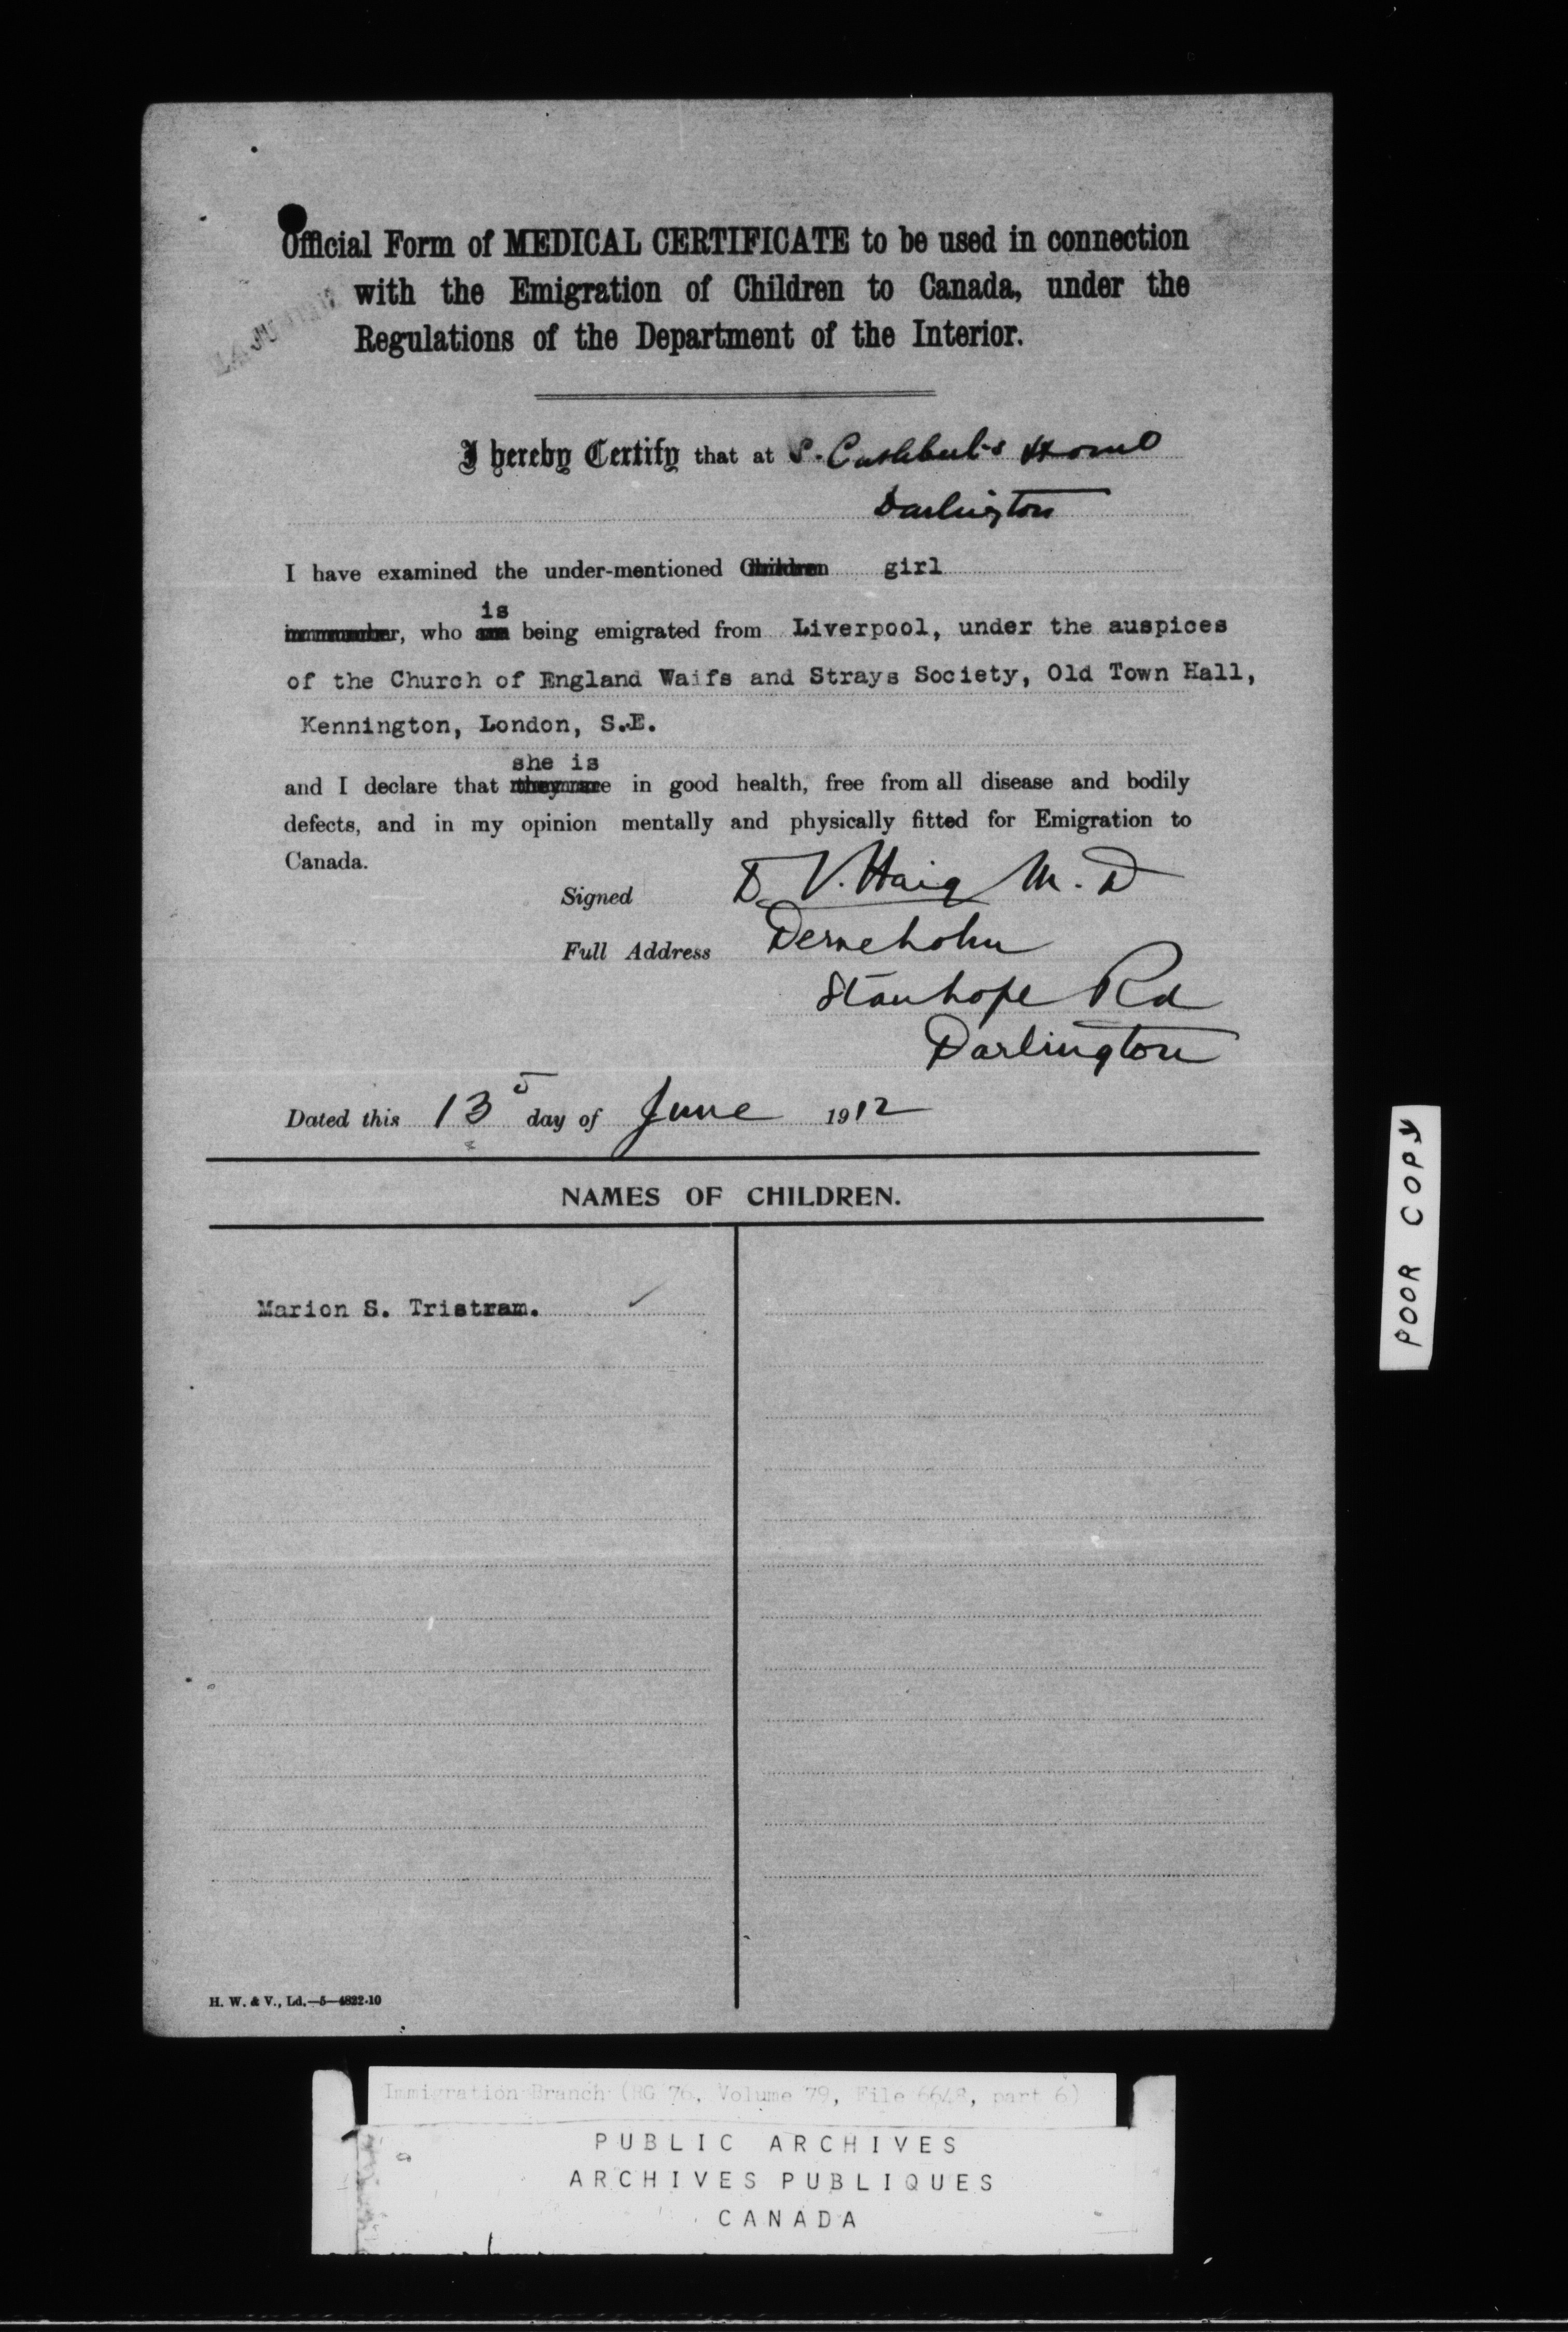 Official Form of MEDICAL CERTIFICATE to be used in connection
with the Emigration of Children to Canada, under the
Regulations of the Department of the Interior.
I hereby Certify that at S. Cuthbert's Home
Darlington
I have examined the under-mentioned Children girl
is
in number, who are being emigrated from Liverpool, under the auspices
of the Church of England Waifs and Strays Society, Old Town Hall,
Kennington, London, S.E.
she is
and I declare that they are in good health, free from all disease and bodily
defects, and in my opinion mentally and physically fitted for Emigration to
Canada.
Signed D. V. Haig M.D
Full Address
Stanhope Rd
Darlington
Dated this 13 day of June 1912
NAMES OF CHILDREN.
Marion S. Tristram.
H. W. & V., Ld.—5—4822-10
POOR COPY
Immigration Branch (RG 76, Volume 79, File 6648, part 6)
PUBLIC ARCHIVES
ARCHIVES PUBLIQUES
CANADA